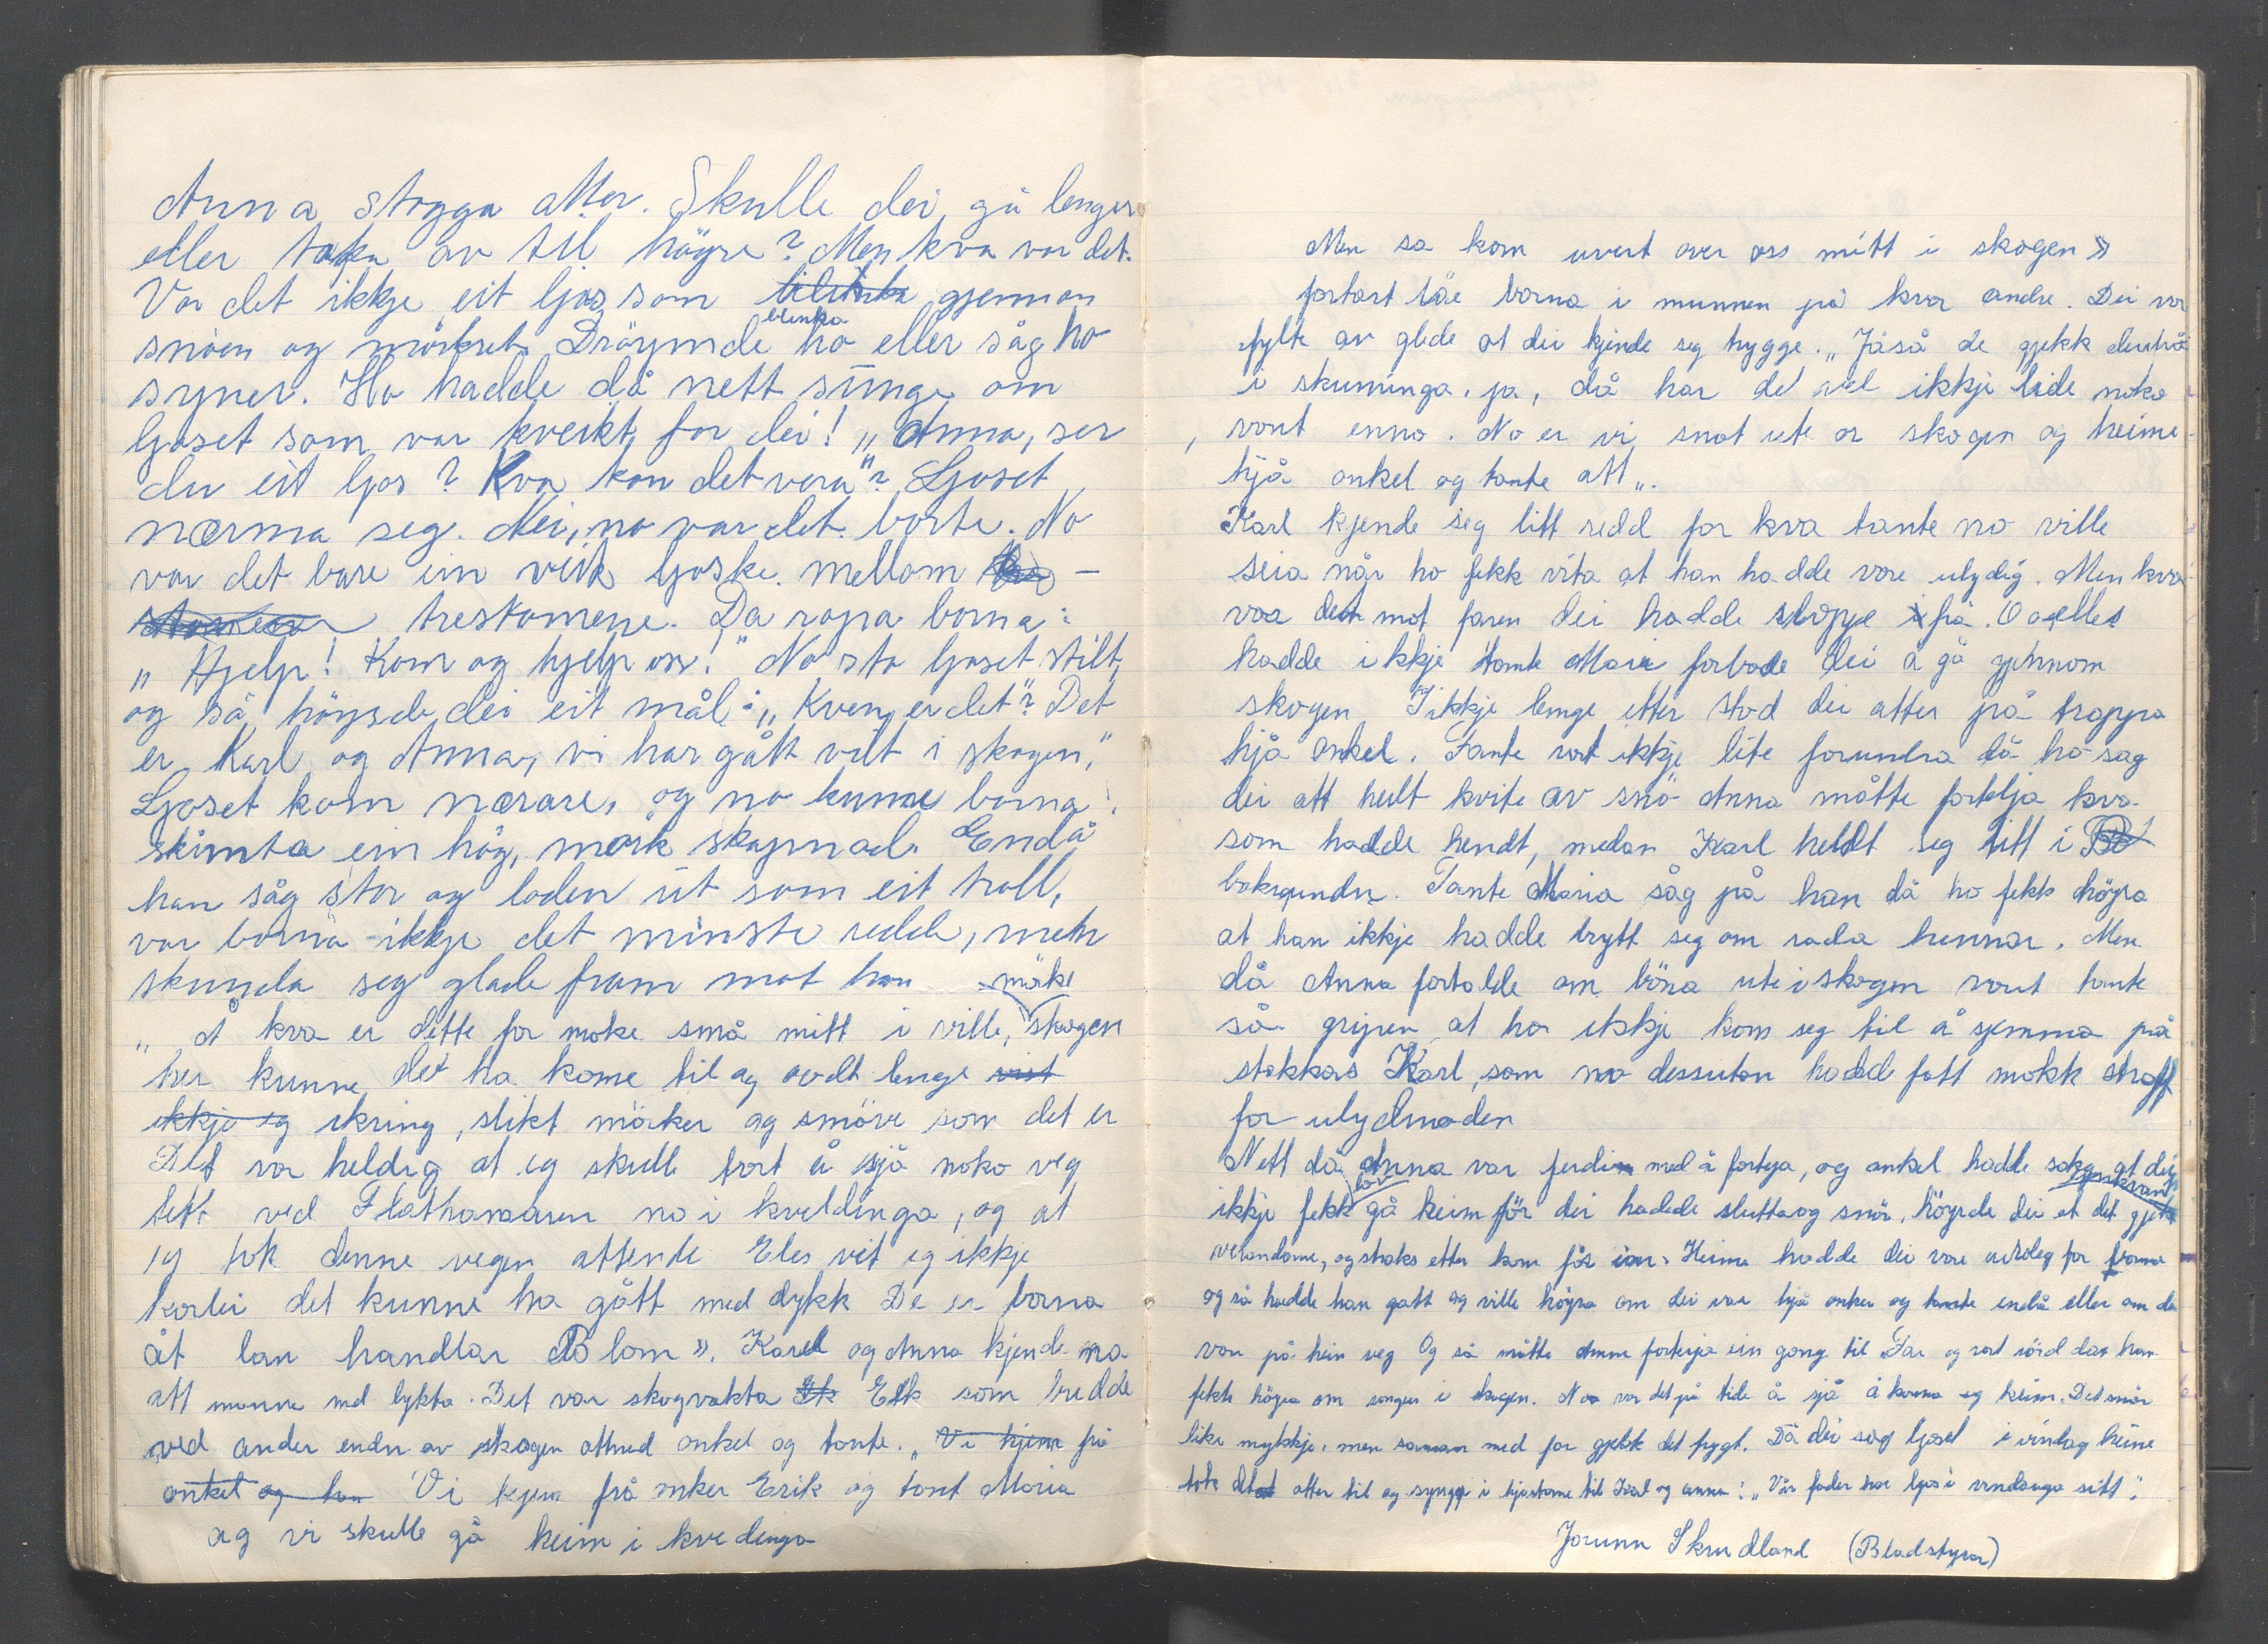 Anna stogga atter. Skulle dei gå lenger
eller taka av til högre? Men kva var det.
Var det ikkje eit ljos som blinka gjennom
snöen og mörkret. Dröymde ho eller såg ho
syner. Ho hadde då nett sunge om
ljoset som var kveikt for dei! „Anna, ser
du eit ljos? Kva kan det vera"? Ljoset
nærma seg. Nei, no var det borte. No
var det bare ein veik ljoske mellom –
trestomene. Da ropa borna:
„Hjelp! Kom og hjelp oss!" No sto ljoset stilt,
og så höyrde dei eit mål: „Kven er det"? Det
er Karl og Anna, vi har gått vilt i skogen,"
Ljoset kom nærare, og no kunne borna
skimta ein hög, mørk skapnad. Endå
han såg stor og loden ut som eit troll,
var borna ikkje det minste redde, men
skunda seg glade fram mot han
„Å kva er dette for noke små mitt i ville, möke skogen
her kunne det ha kome til og ovdt lenge vist
ikkje eg ikring, slikt mörker og snöve som det er
Det var heldig at eg skulle bort å sjå noko veg
tett ved Flathamaren no i kveldinga, og at
eg tok denne vegen attende Eles veit eg ikkje
korlei det kunne ha gått med dykk De er borna
åt lan handlar Bö lom». Karl og Anna kjende no
att mannen med lykta. Det var skogvakta Eik som budde
ved ander enden av skogen attmed onkel og tante. „Vi kjem frå
onkel og han Vi kjem frå onkel Erik og tant Maria
og vi skulle gå heim i kvedinga
Men sa kom uvert over oss mitt i skogen»
fortart täe borna i munnen på kvar andre. Dei var
fylte av glede at dei kjende seg trygge. „Jåså de gjekk deiutvå
i skuminga, ja, då har det vel ikkje lide noko
vont enno. No er vi snat ute or skogen og heime
hjå onkel og tante att„.
Karl kjende seg litt redd for kva tante no ville
seia når ho fekk vita at han hadde vore ulydig. Men kva
var det mot faren dei hadde sloppe ifrå. Og elles
hadde ikkje tante Maria forbode dei å gå gjennom
skogen Ikkje lenge etter stod dei atter på troppa
hjå onkel. Tante vart ikkje lite forundra då ho såg
dei att heilt kvite av snö Anna måtte fortelja kva
som hadde hendt, medan Karl heldt seg litt i
bakgrundn. Tante Maria såg på han då ho fekk höyra
at han ikkje hadde brytt seg om råda hennar. Men
då Anna fortalde om böna ute i skogen vart tante
så gripen at ho ikkje kom seg til å sjemma på
stakkars Karl, som no dessutan hadde fatt nokk straff
for ulydnaden
Nett då Anna var ferdi med å forteja, og onkel hadde sakg at dei
ikkje fekk lov gå heim för dei hadde slutta og snö, höyrde dei at det gjekk
verandaene, og straks etter kom får inn. Heime hadde dei vore uroleg for borna
og så hadde han gatt og ville höyra om dei var hjå onkel og tante endå eller om dei
var på heim veg Og så måtte Anna forteja ein gong til Far og vart rörd då han
fekk höyra om songen i skogen. No var det på tide å sjå å koma seg heim. Det snör
like mykkje, men saman med far gjekk det trygt. Då dei såg ljoset i vindag heime
tok det atter til og syngja i hjartome til Karl og Anna: „Vår fader har ljos i vindauga sitt".
Jorunn Skrudland (Bladstyrar)